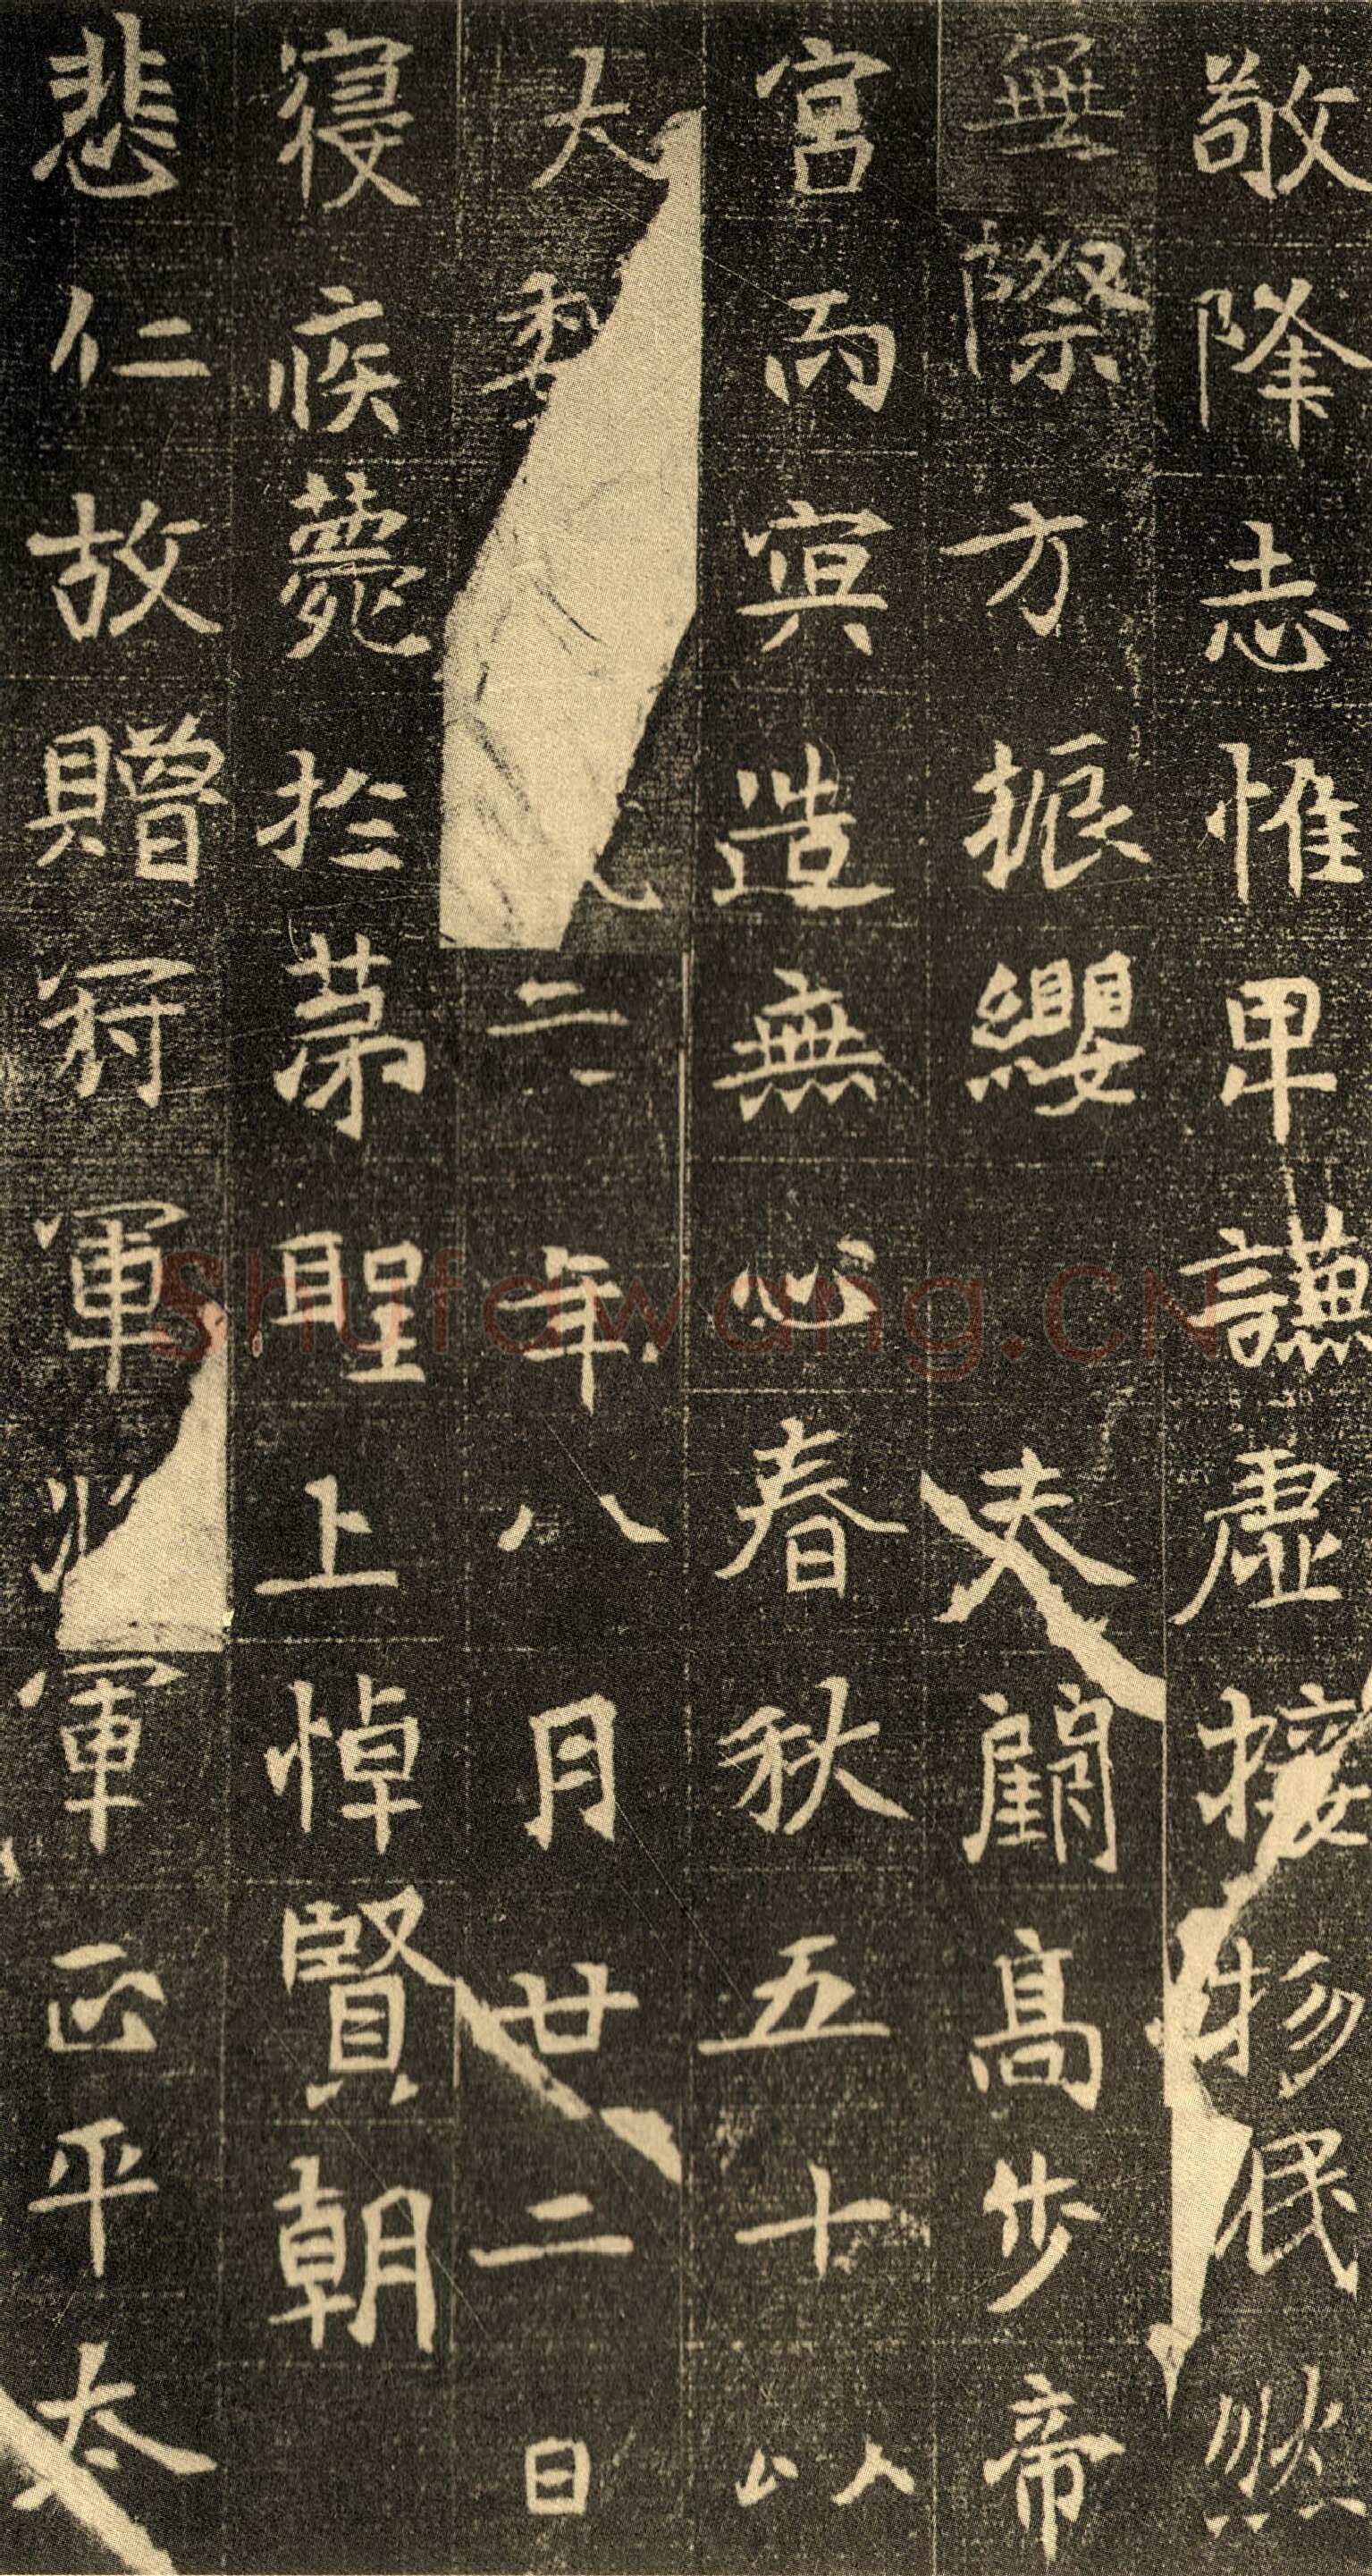 敬降志惟卑謙虛接物泯然
無際方振纓夫關高步帝
宮而冥造無心春秋五十以
大二年八月廿二日
寑疾薨於苐聖上悼賢朝
悲仁故贈冠軍將軍正平太
Shufawang.CN